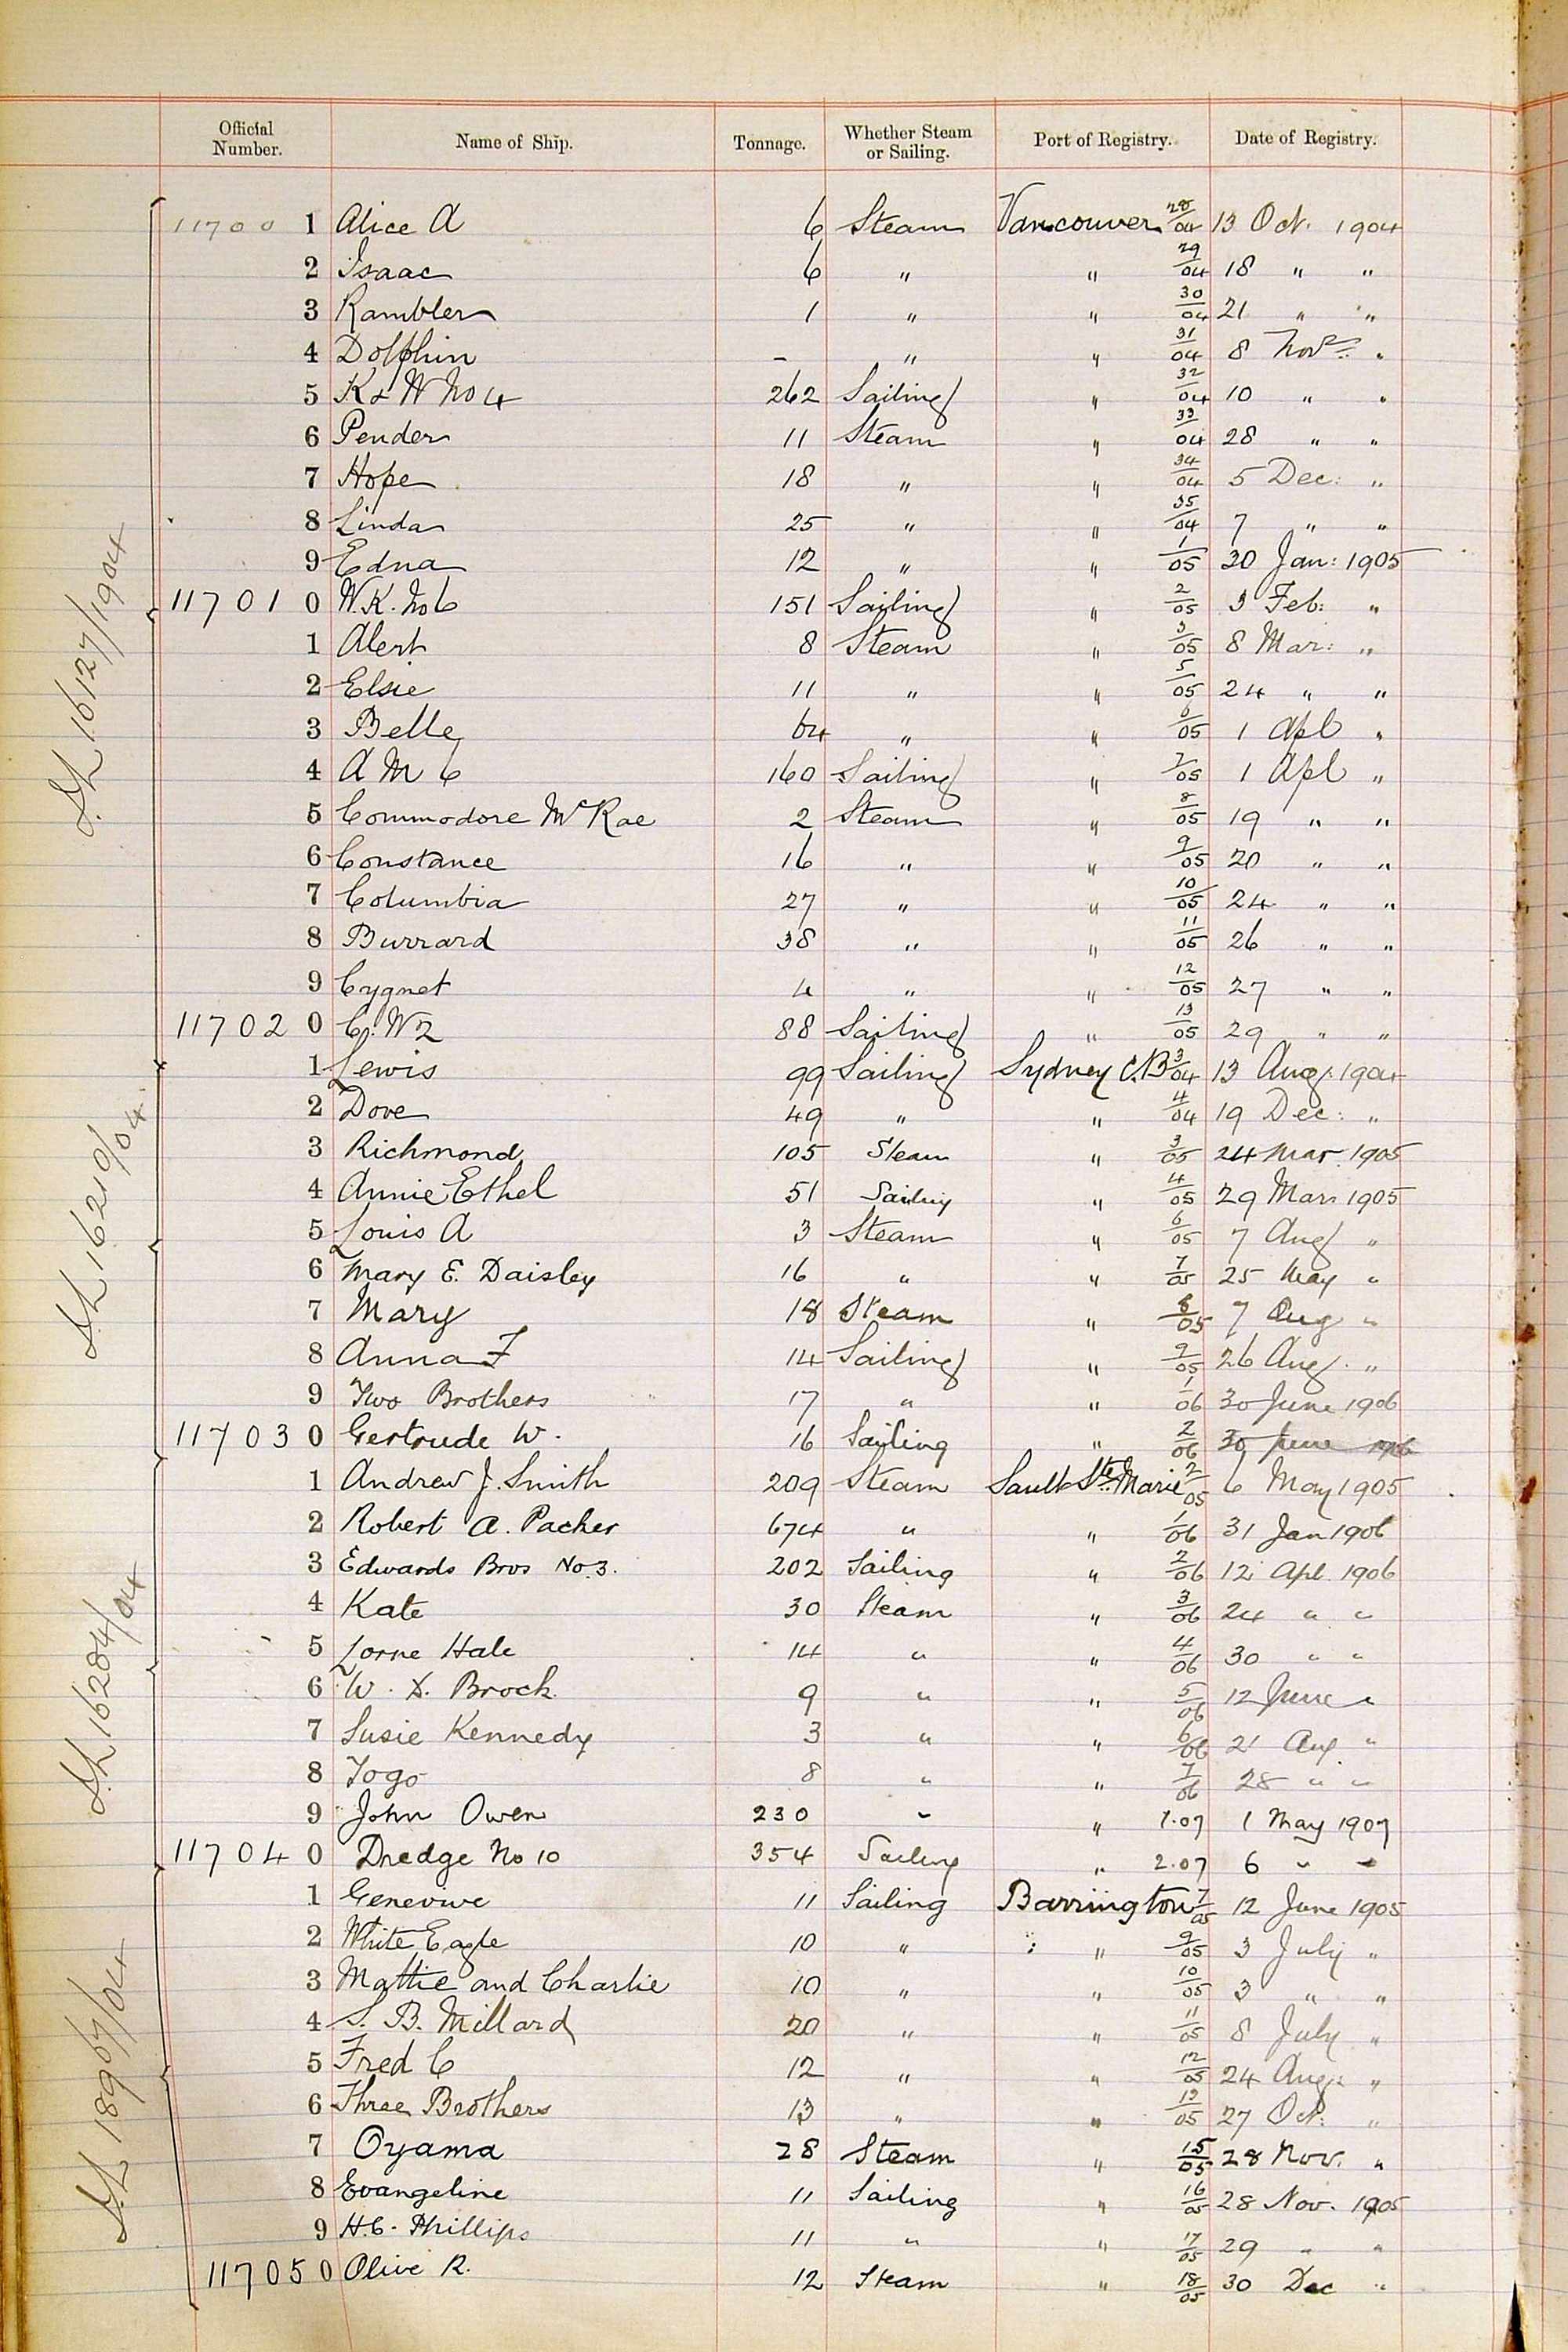 Official Number. Name of Ship. Tonnage. Whether Steam or Sailing. Port of Registry. Date of Registry.
11700 1 Alice A 6 Steam Vancouver 28/04 13 Oct. 1904
2 Isaac 6 " " 29/04 18 " "
3 Rambler 1 " " 30/04 21 " "
4 Dolphin - " " 31/04 8 Novr "
5 K & W No 4 262 Sailing " 32/04 10 " "
6 Pender 11 Steam " 33/04 28 " "
7 Hope 18 " " 34/04 5 Dec: "
8 Linda 25 " " 35/04 7 " "
9 Edna 12 " " 1/05 30 Jan: 1905
11701 0 W.K. No 6 151 Sailing " 2/05 3 Feb: "
1 Alert 8 Steam " 3/05 8 Mar: "
2 Elsie 11 " " 5/05 24 " "
3 Belle 64 " " 6/05 1 Apl "
4 A M C 160 Sailing " 7/05 1 Apl "
5 Commodore McRae 2 Steam " 8/05 19 " "
6 Constance 16 " " 9/05 20 " "
7 Columbia 27 " " 10/05 24 " "
8 Burrard 38 " " 11/05 26 " "
9 Cygnet 4 " " 12/05 27 " "
11702 0 C. W 2 88 Sailing " 13/05 29 " "
1 Lewis 99 Sailing Sydney C.B 3/04 13 Aug. 1904
2 Dove 49 " " 4/04 19 Dec: "
3 Richmond 105 Steam " 3/05 24 Mar. 1905
4 Annie Ethel 51 Sailing " 4/05 29 Mar. 1905
5 Louis A 3 Steam " 6/05 7 Aug "
6 Mary E. Daisley 16 " " 7/05 25 May "
7 Mary 18 Steam " 8/05 7 Aug "
8 Anna F 14 Sailing " 9/05 26 Aug. "
9 Two Brothers 17 " " 1/06 30 June 1906
11703 0 Gertrude W. 16 Sailing " 2/06 30 June 1906
1 Andrew J. Smith 209 Steam Sault Ste. Marie 2/05 6 May 1905
2 Robert A. Packer 674 " " 1/06 31 Jan 1906
3 Edwards Bros No. 3. 202 Sailing " 2/06 12 Apl. 1906
4 Kate 30 Steam " 3/06 24 " "
5 Lorne Hale 14 " " 4/06 30 " "
6 W. S. Brock 9 " " 5/06 12 June "
7 Susie Kennedy 3 " " 6/06 21 Aug "
8 Togo 8 " " 7/06 28 " "
9 John Owen 230 " " 1.07 1 May 1907
11704 0 Dredge No 10 354 Sailing " 2.07 6 " "
1 Genevive 11 Sailing Barrington 7/05 12 June 1905
2 White Eagle 10 " " 9/05 3 July "
3 Mattie and Charlie 10 " " 10/05 3 " "
4 S. B. Millard 20 " " 11/05 8 July "
5 Fred C 12 " " 12/05 24 Aug: "
6 Three Brothers 13 " " 13/05 27 Oct: "
7 Oyama 28 Steam " 15/05 28 Nov. "
8 Evangeline 11 Sailing " 16/05 28 Nov. 1905
9 H.C. Phillips 11 " " 17/05 29 " "
11705 0 Olive R. 12 Steam " 18/05 30 Dec "
16127/1904
16210/04
16284/04
18967/04